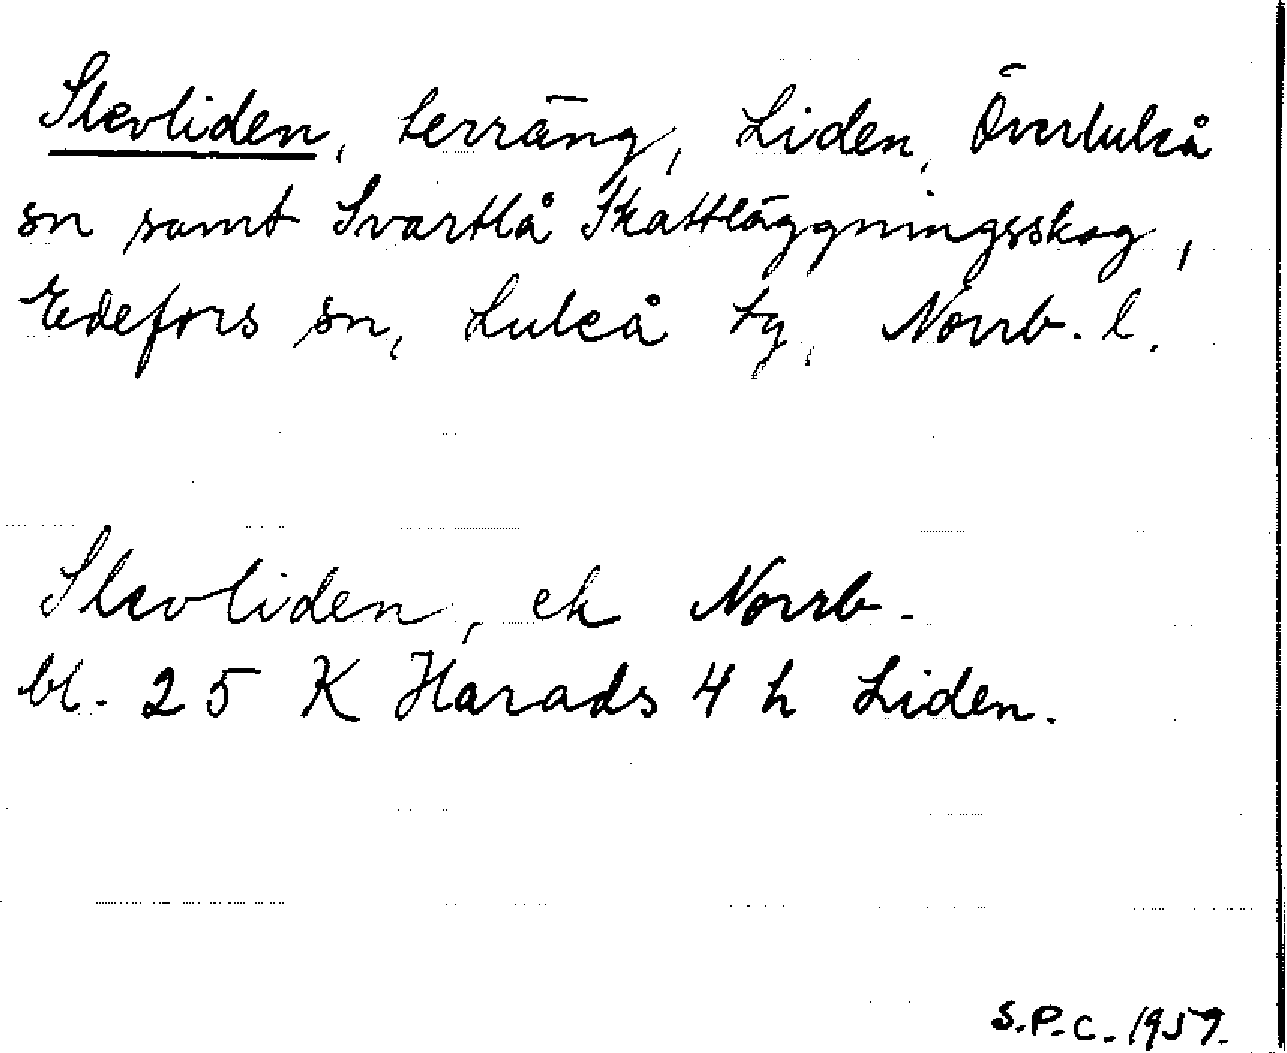 Slevliden, terräng, Liden, Överluleå
sn samt Svartlå Skattläggningsskog,
Edefors sn, Luleå tg, Norrb. l.
Slevliden, ek Norrb.
bl. 25 K Harads 4 h Liden.
S.P.C. 1959.